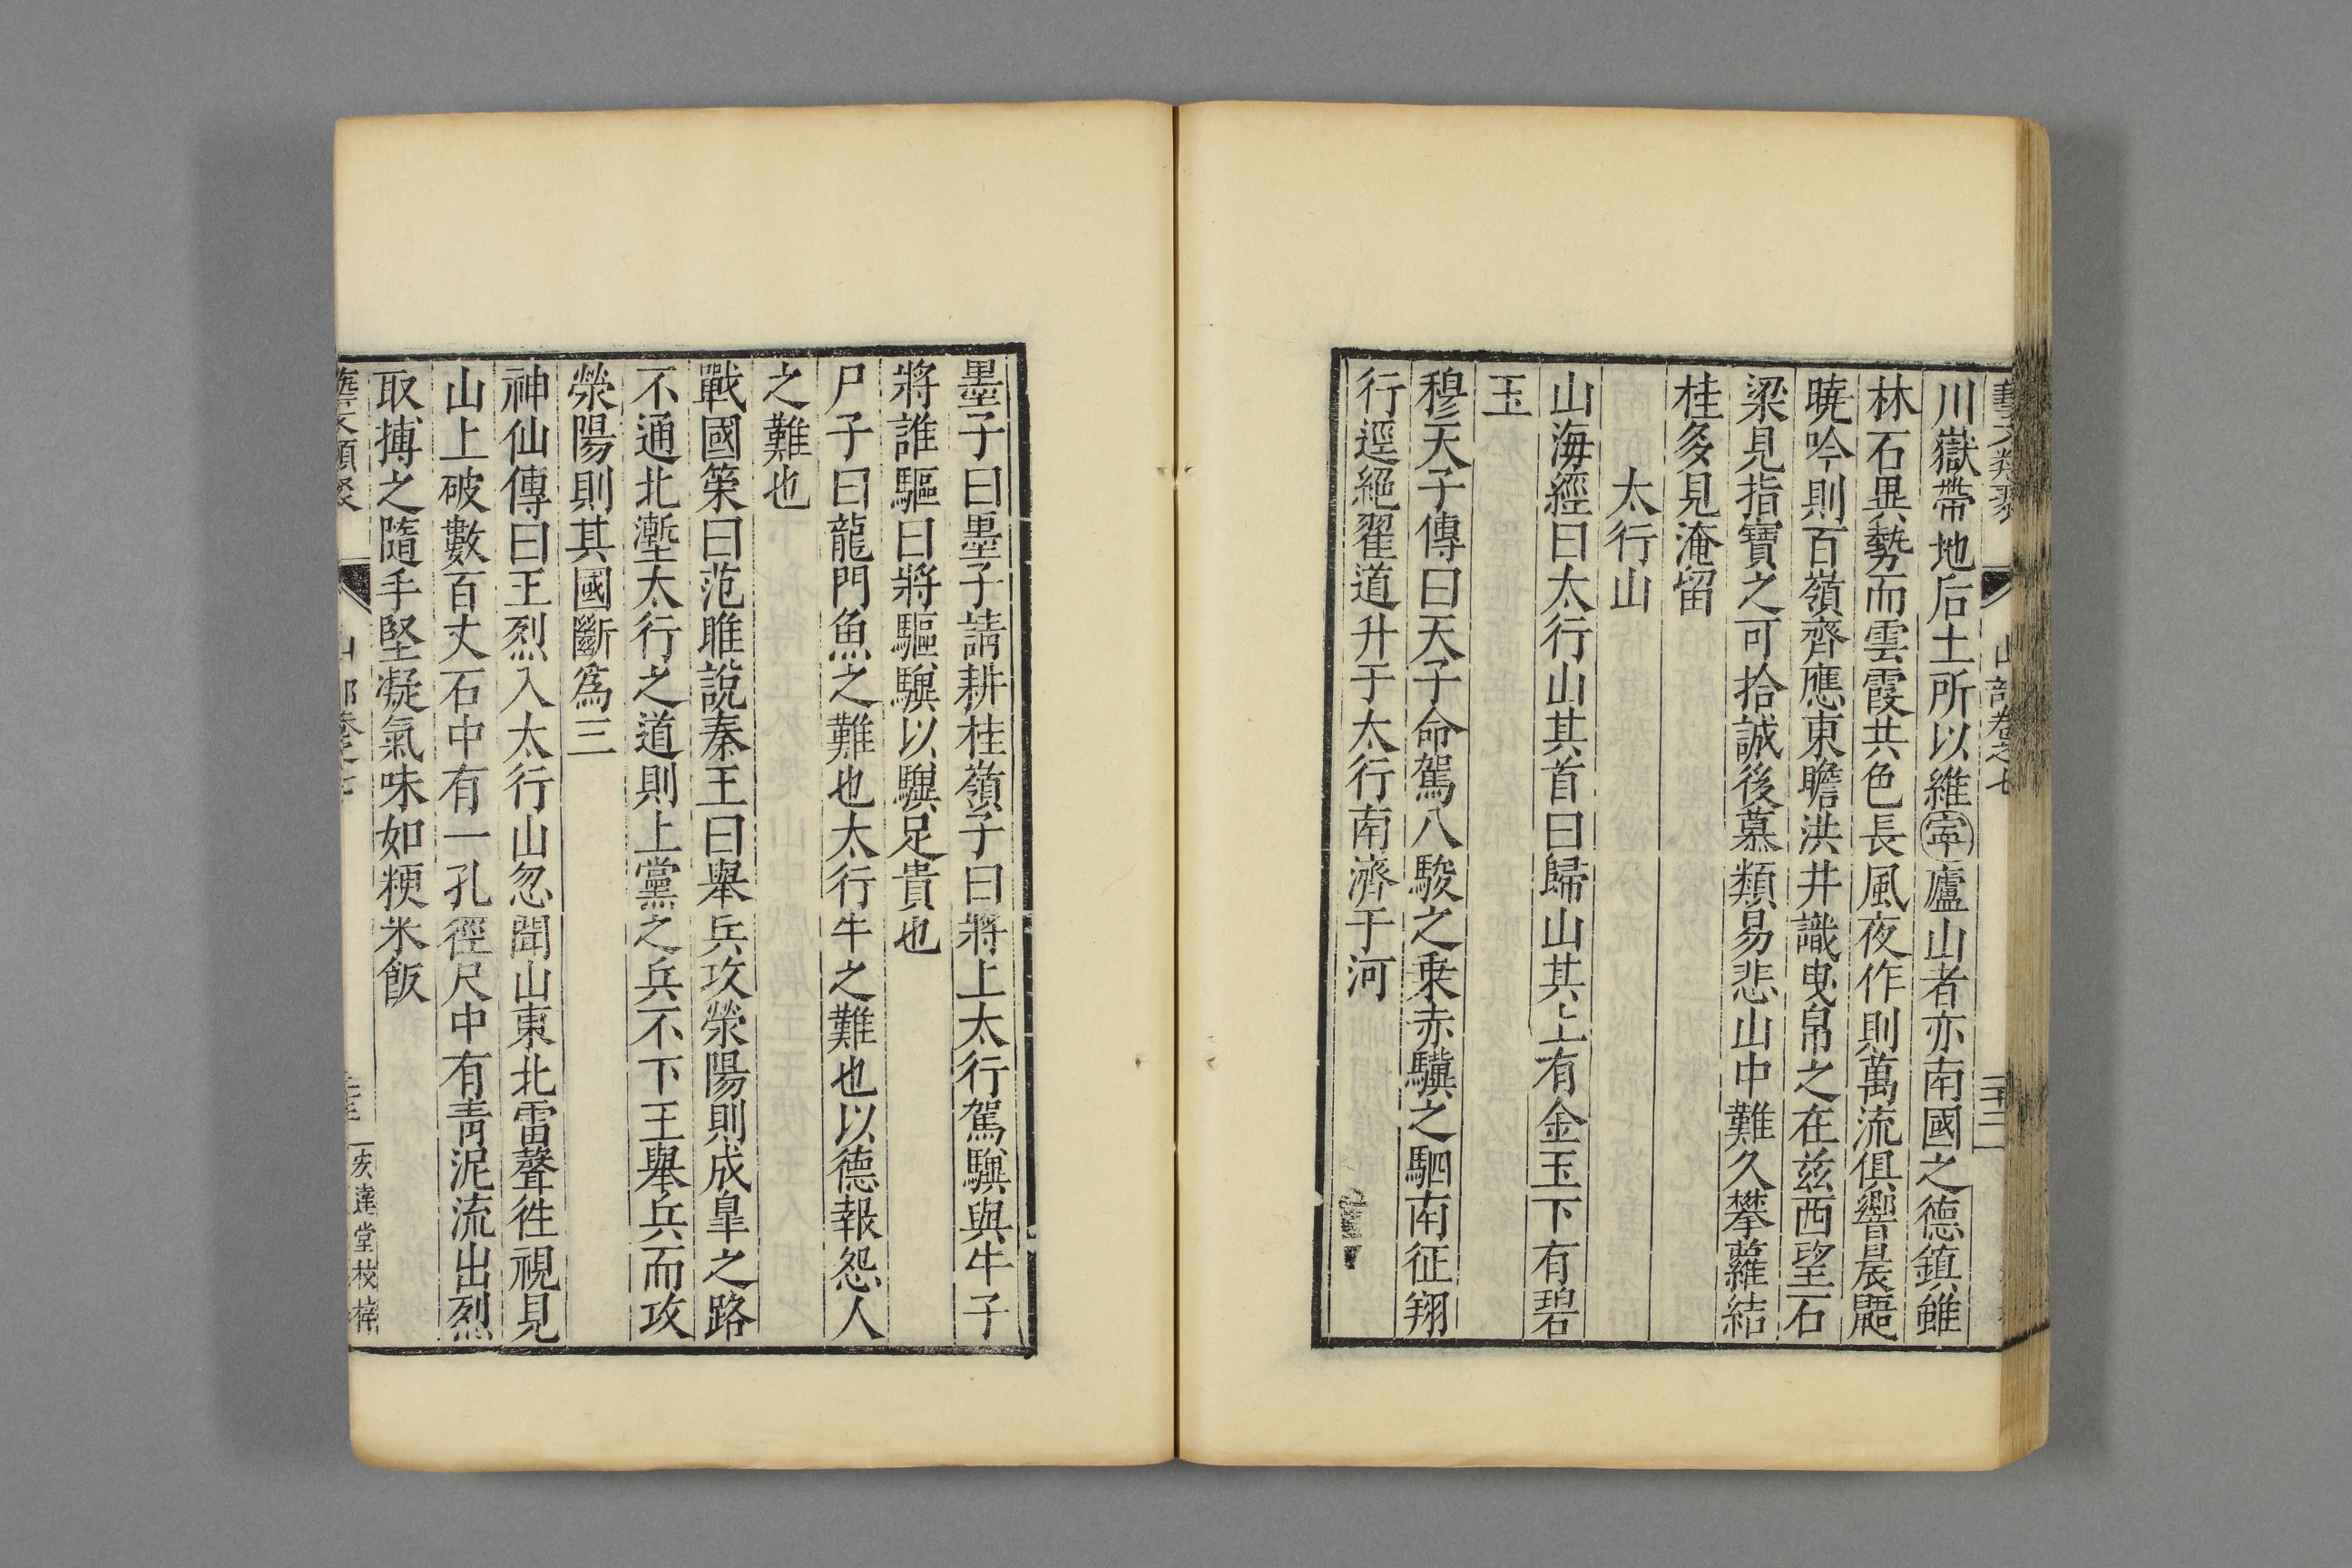 藝文類聚 山部卷之七 二十二
川嶽帶地后土所以維寧廬山者亦南國之德鎮雖
林石異勢而雲霞共色長風夜作則萬流俱響晨鼯
曉吟則百嶺齊應東瞻洪井識曳帛之在茲西望石
梁見指寶之可拾誠後慕類易悲山中難久攀蘿結
桂多見淹留
太行山
山海經曰太行山其首曰歸山其上有金玉下有碧
玉
穆天子傳曰天子命駕八駿之乗赤驥之駟南征翔
行逕絕翟道升于太行南濟于河
墨子曰墨子請耕桂嶺子曰將上太行駕驥與牛子
將誰驅曰將驅驥以驥足貴也
尸子曰龍門魚之難也太行牛之難也以德報怨人
之難也
戰國策曰范雎說秦王曰舉兵攻滎陽則成皐之路
不通北塹太行之道則上黨之兵不下王舉兵而攻
滎陽則其國斷爲三
神仙傳曰王烈入太行山忽聞山東北雷聲徃視見
山上破數百丈石中有一孔徑尺中有靑泥流出烈
取摶之隨手堅凝氣味如粳米飯
藝文類聚 山部卷之七 達堂校梓